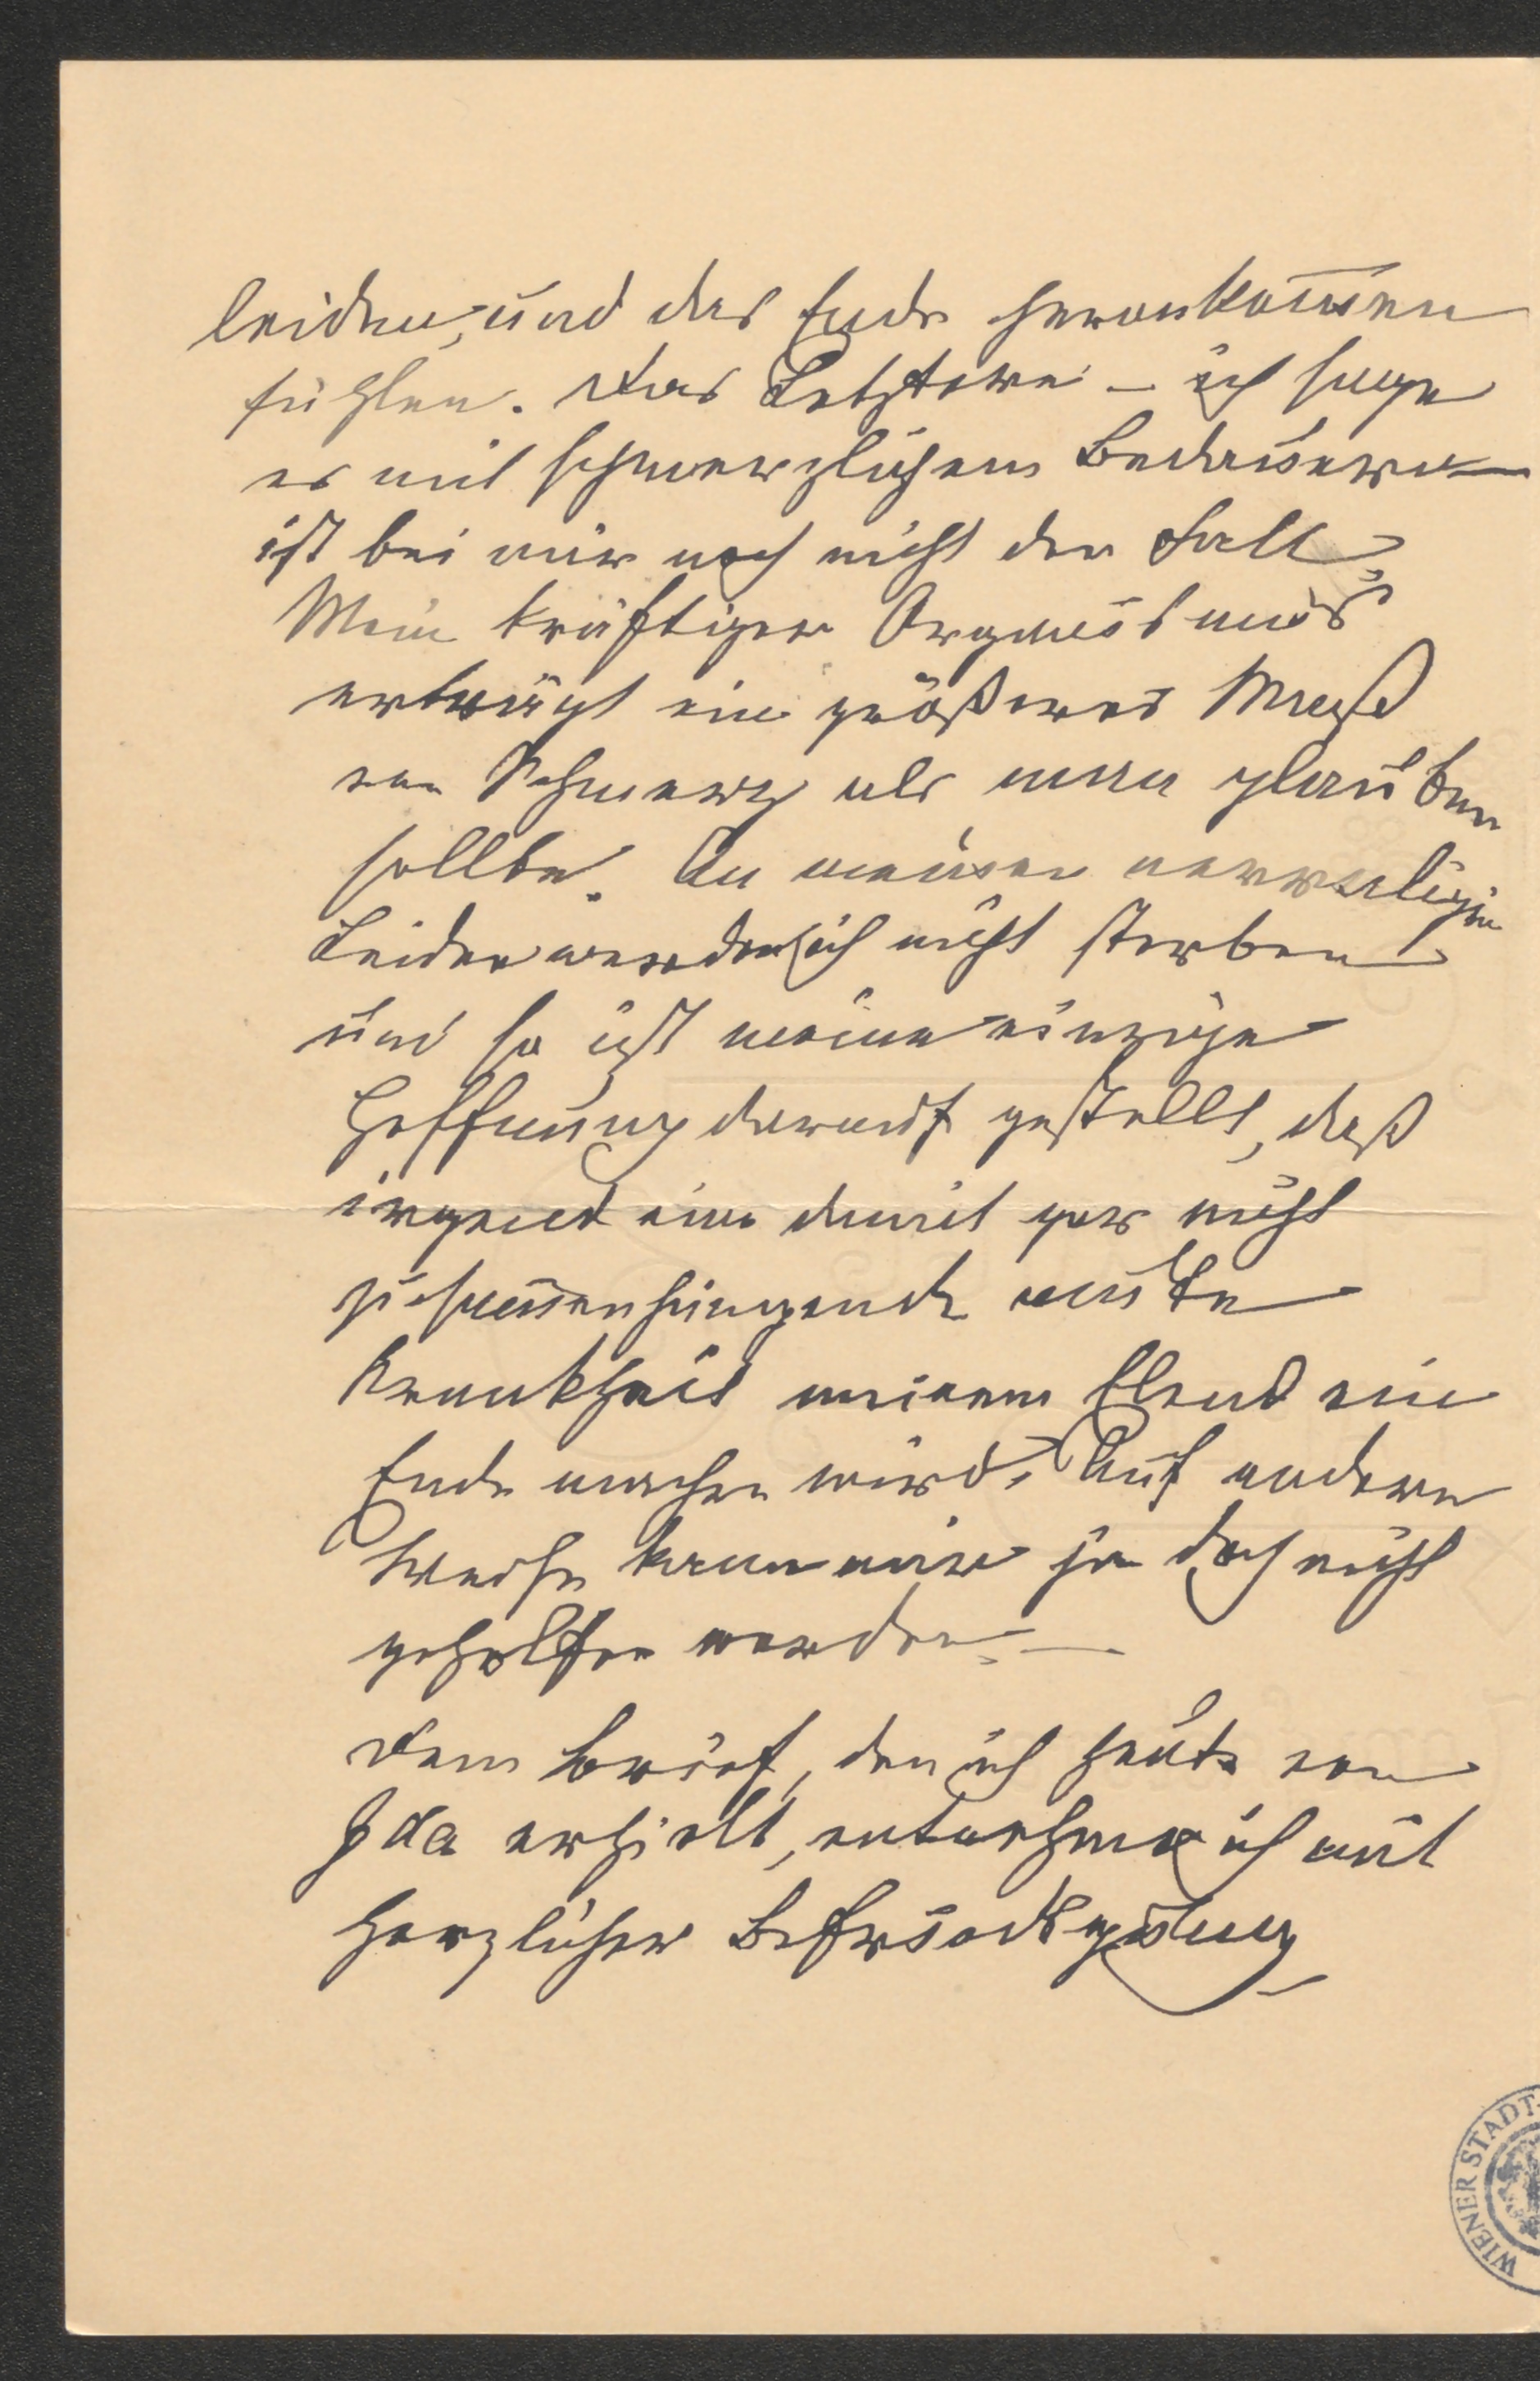 leiden, und das Ende herankom̅en
fühlen. Das Letztere – ich sage
es mit schmerzlichem Bedauern –
ist bei mir noch nicht der Fall.
Mein kräftiger Organismus
erträgt ein größeres Maß
von Schmerz als man glauben
sollte. An meinen nervaligien
Leiden werde ich nicht sterben
und so ist meine einzige
Hoffnung darauf gestellt, daß
irgend eine damit gar nicht
zusam̅enhängende acute
Krankheit meinem Elend ein
Ende machen wird. Auf andere
Weise kann mir ja doch nicht
geholfen werden. –
Dem Brief, den ich heute von
Ida erhielt, entnehme ich mit
herzlicher Befriedigung
WIENER STADT-